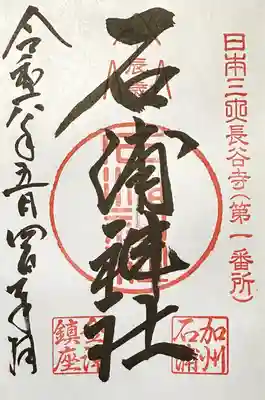 日本三所長谷寺(第一番所)
石浦神社
加州
石浦
金澤
鎮座
令和六年五月四日奉拝